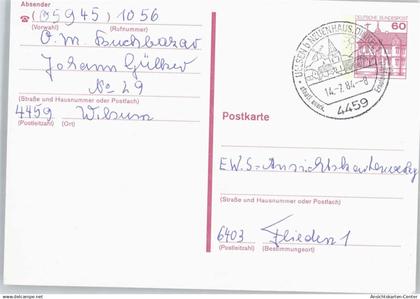 Absender
☎ (05945) 1056
(Vorwahl) (Rufnummer)
O. M. Buchbazar
Johann Gülker
No 29
(Straße und Hausnummer oder Postfach)
4459 Wilsum
(Postleitzahl) (Ort)
DEUTSCHE BUNDESPOST
60
UELSEN b NEUHAUS, DINKEL
14.-7.84-8
4459
Postkarte
E.W.S-Ansichtskartenverlag
(Straße und Hausnummer oder Postfach)
6403 Flieden 1
(Postleitzahl) (Bestimmungsort)
Ansichtskarten-Center